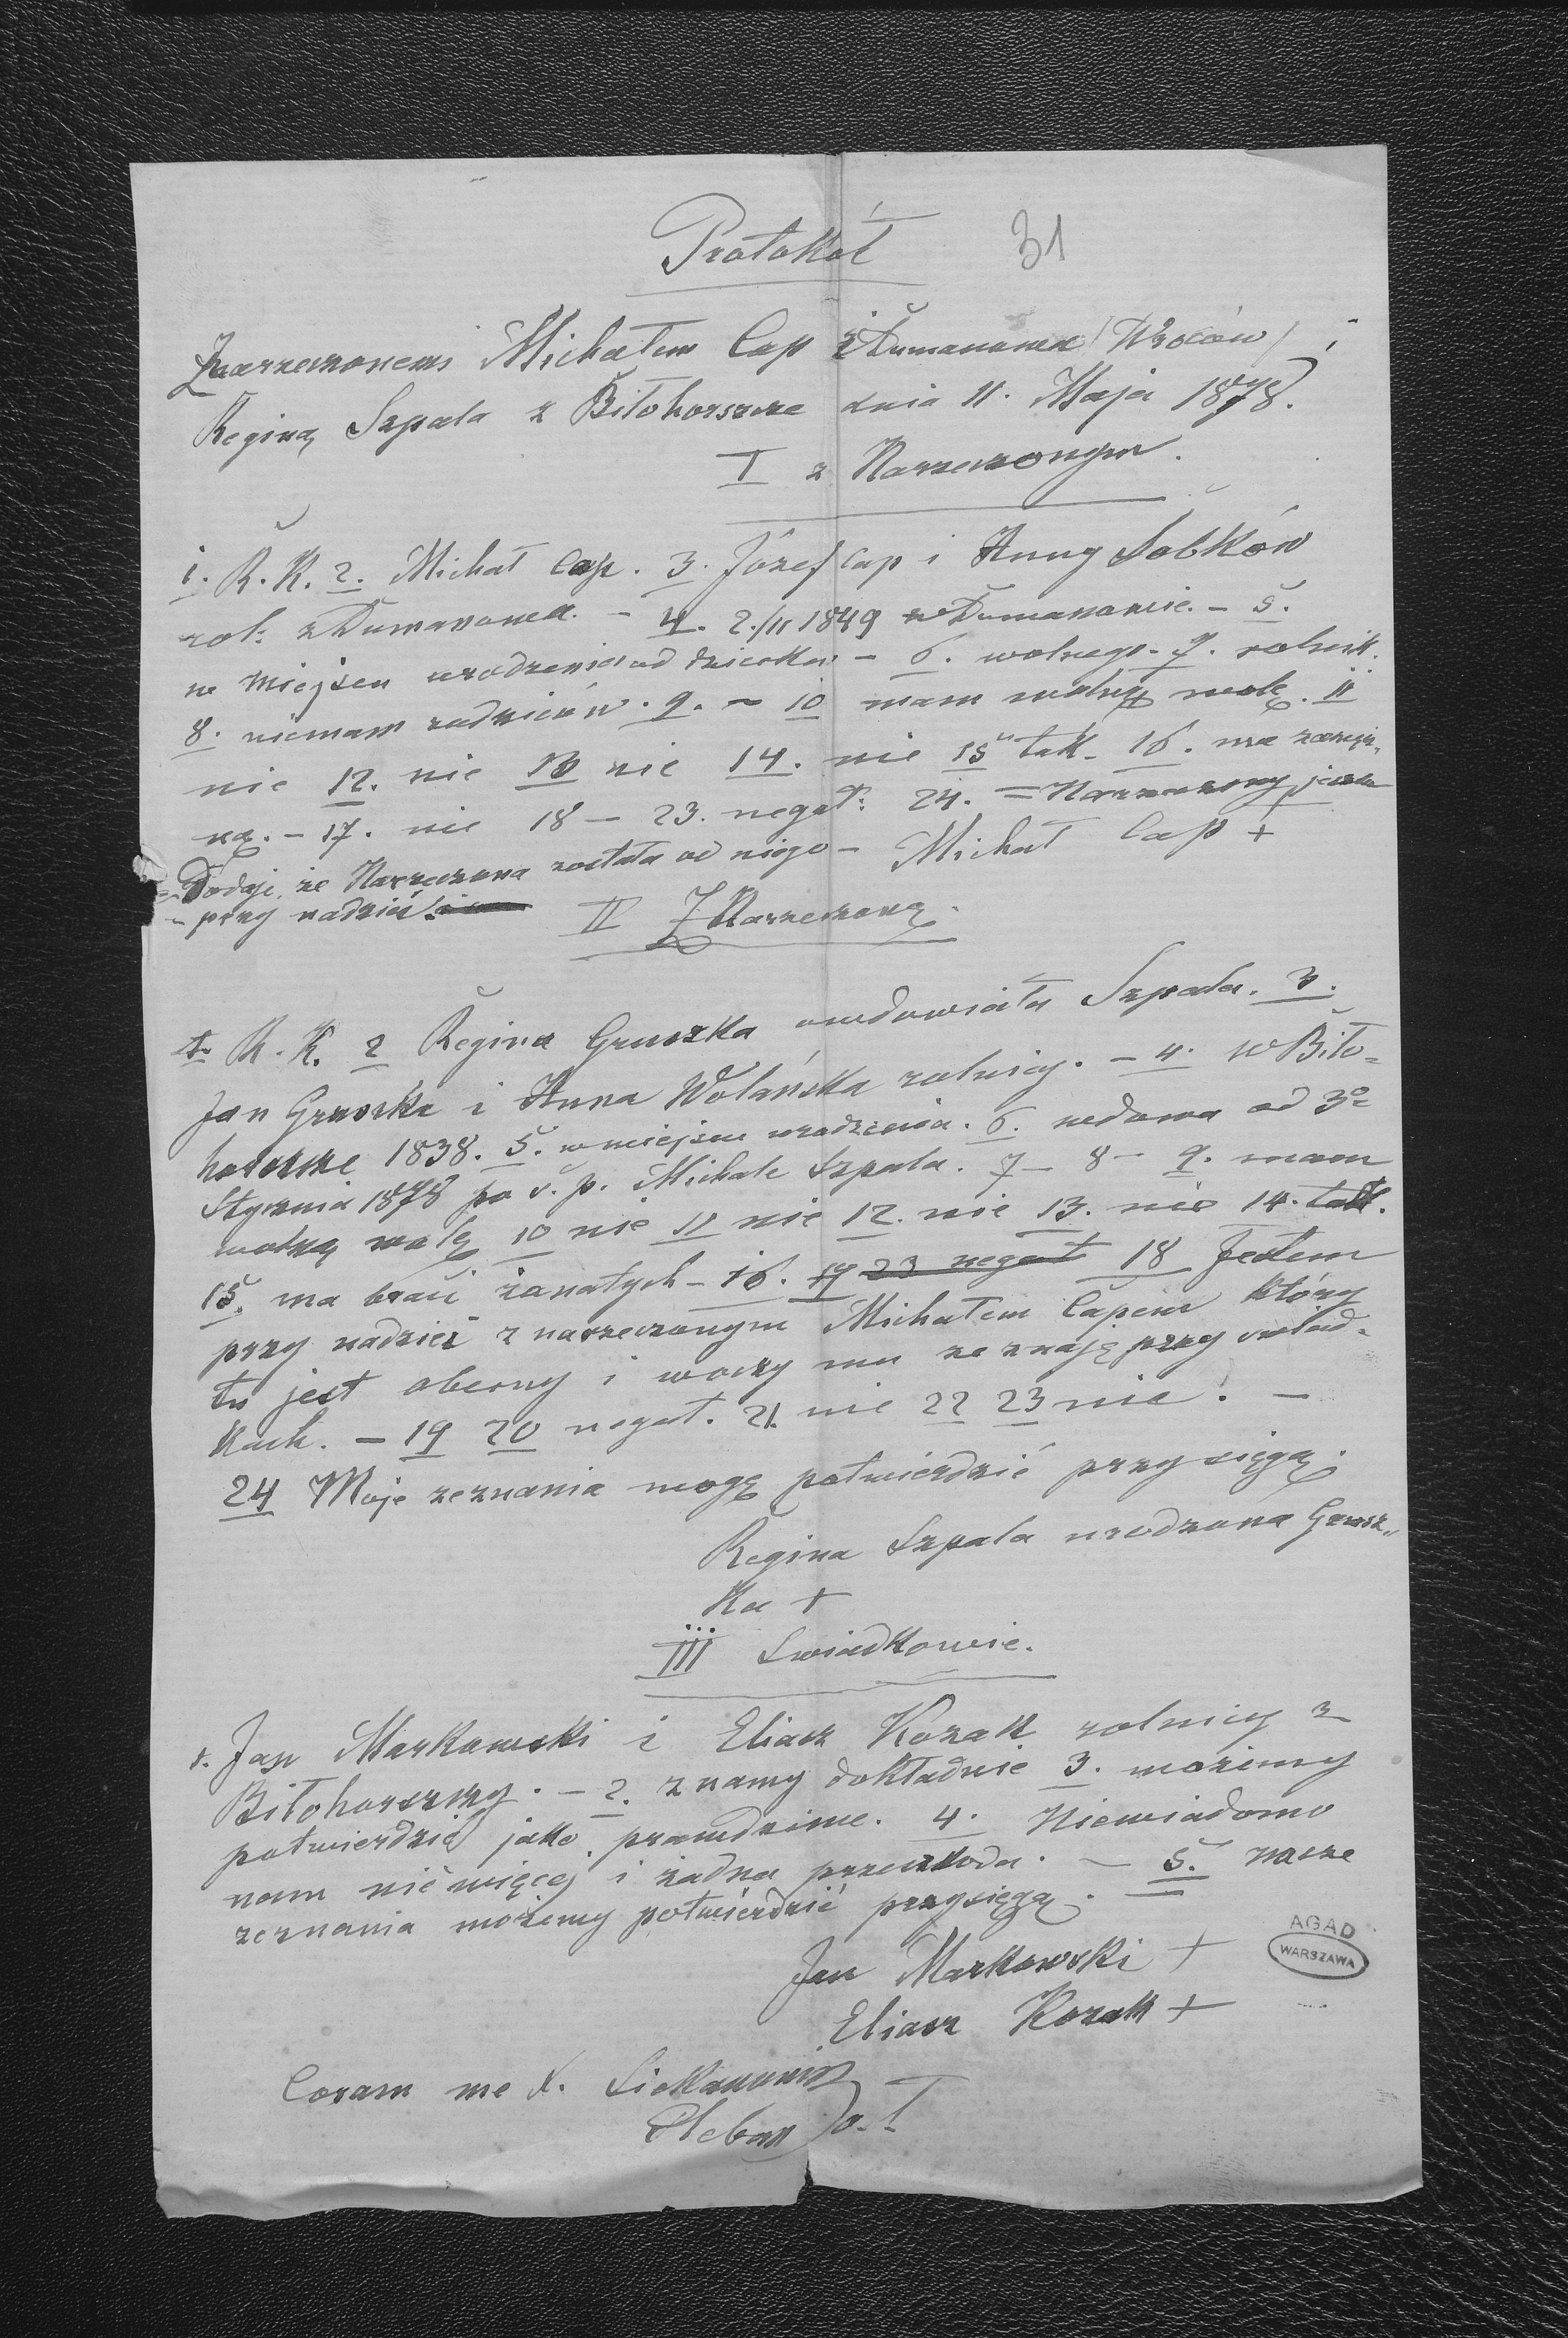 Protokół
31
z narzeczonemi Michałem Cap z Dumanowa / Wroców / i
Reginą Szpala z Biłohorszcze dnia 11. Maja 1878.
I z Narzeczonym.
1. R. K. 2. Michał Cap. 3. Józef Cap i Anny Sobków
rol: z Dumanowa. - 4. 2./11 1849 w Dumanowie. - 5.
w miejscu urodzenia od dziecka - 6. wolnego - 7. rolnik.
8. niemam rodziców. 9. - 10 mam wolną wolę. 11
nie 12. nie 13 nie 14. nie 15 tak. 16. ma
ną. - 17. nie 18 - 23. negat: 24. = Narzeczony
= Dodaje że Narzeczona została od niego - Michał Cap +
- przy nadziei.
II Z Narzeczoną.
1. R. K. 2 Regina Gruszka owdowiała Szpala. 3.
Jan Gruszka i Anna Wolańska rolnicy. - 4. w Biło=
horszcze 1838. 5. w miejscu urodzenia. 6. wdowa od 3o
Stycznia 1878 po ś. p. Michale Szpala. 7 - 8 - 9. mam
wolną wolę 10 nie 11 nie 12. nie 13. nie 14. tak.
15. ma braci żonatych - 16. 17 23 negat 18 Jestem
przy nadziei z narzeczonym Michałem Capem który
tu jest obecny i w oczy mu zeznaję przy świad=
kach. - 19 20 negat. 21. nie 22 23 nie. -
24 Moje zeznania mogę potwierdzić przysięgą.
Regina Szpala urodzona Grusz=
ka +
III Swiadkowie.
1. Jan Markowski i Eliasz Kozak rolnicy z
Biłohorszczy. - 2. znamy dokładnie 3. możemy
potwierdzić jako prawdziwe. 4. Niewiadomo
nam nic więcej i żadna przeszkoda. - 5. nasze
zeznania możemy potwierdzić przysięgą.
Jan Markowski +
Eliasz Kozak +
AGAD
WARSZAWA
Coram me X.
Pleban